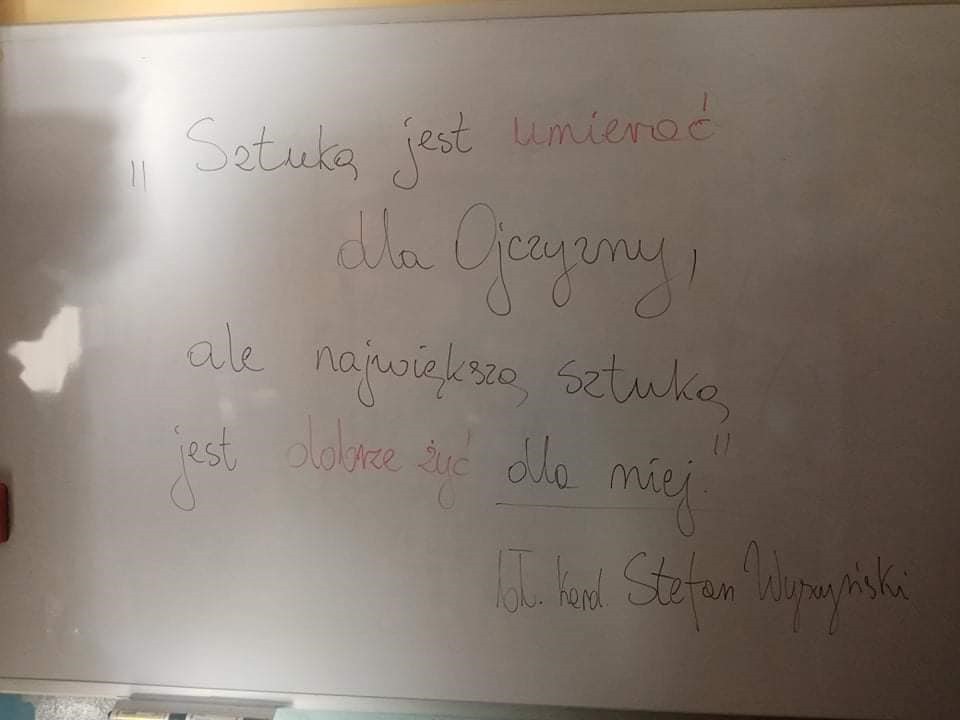 „Sztuką jest umierać
dla Ojczyzny,
ale największą sztuką
jest dobrze żyć dla niej."
bł. kard. Stefan Wyszyński